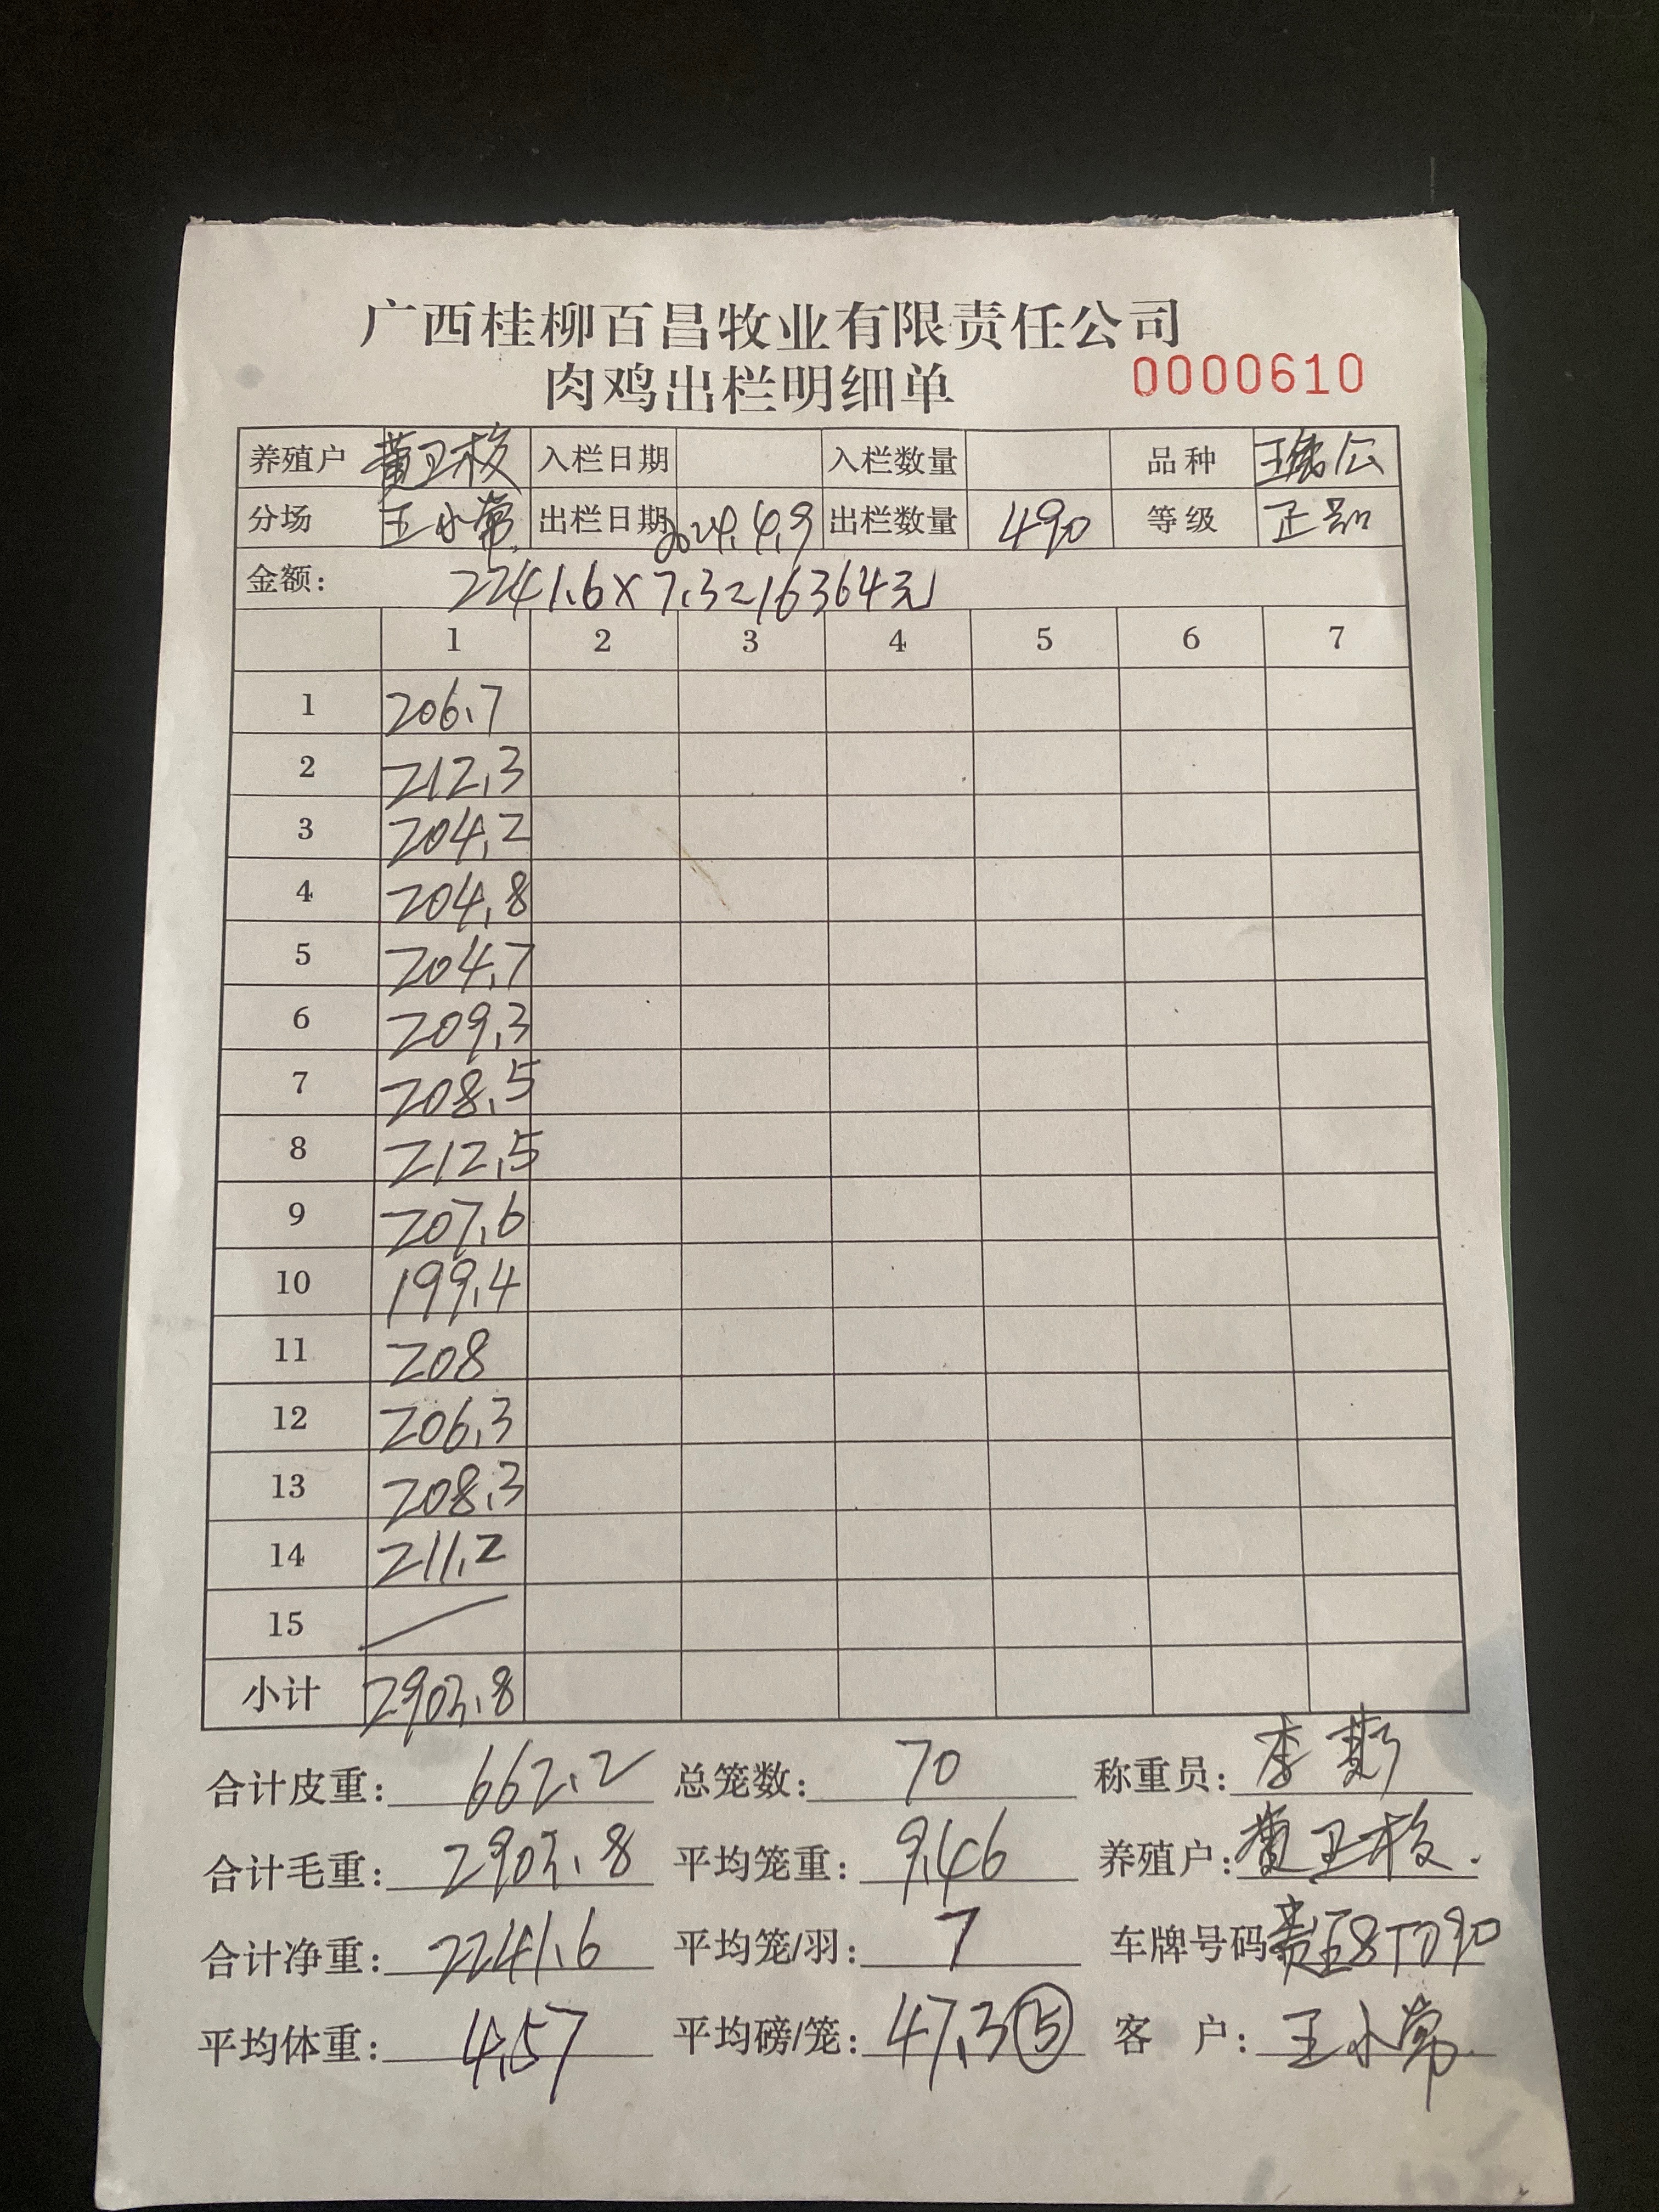 广西桂柳百昌牧业有限责任公司
肉鸡出栏明细单 0000610
养殖户 黄卫枝 入栏日期 入栏数量 品种 公
分场 王小常 出栏日期 2024.4.9 出栏数量 490 等级 正品
金额: 2241.6×7.3=16364元
1 2 3 4 5 6 7
1 206.7
2 212.3
3 204.2
4 204.8
5 204.7
6 209.3
7 208.5
8 212.5
9 207.6
10 199.4
11 208
12 206.3
13 208.3
14 211.2
15
小计 2903.8
合计皮重: 662.2 总笼数: 70 称重员: 李
合计毛重: 2903.8 平均笼重: 9.46 养殖户: 黄卫枝.
合计净重: 2241.6 平均笼/羽: 7 车牌号码 8T090
平均体重: 4.57 平均磅/笼: 47.3 ⑤ 客 户: 王小常